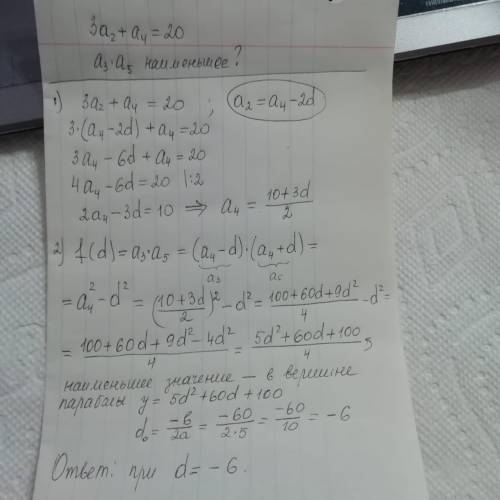 3a₂ + a₄ = 20
a₃·a₅ наименьшее?
1) 3a₂ + a₄ = 20 ; a₂ = a₄ - 2d
3·(a₄ - 2d) + a₄ = 20
3a₄ - 6d + a₄ = 20
4a₄ - 6d = 20 |:2
2a₄ - 3d = 10 ⇒ a₄ = (10+3d)/2
2) f(d) = a₃·a₅ = (a₄ - d)·(a₄ + d) =
a₃ a₅
= a₄² - d² = ((10+3d)/2)² - d² = (100+60d+9d²)/4 - d² =
= (100+60d+9d²-4d²)/4 = (5d²+60d+100)/4 ;
наименьшее значение — в вершине
параболы y = 5d² + 60d + 100
d₀ = -b/2a = -60/2·5 = -60/10 = -6
Ответ: при d = -6.